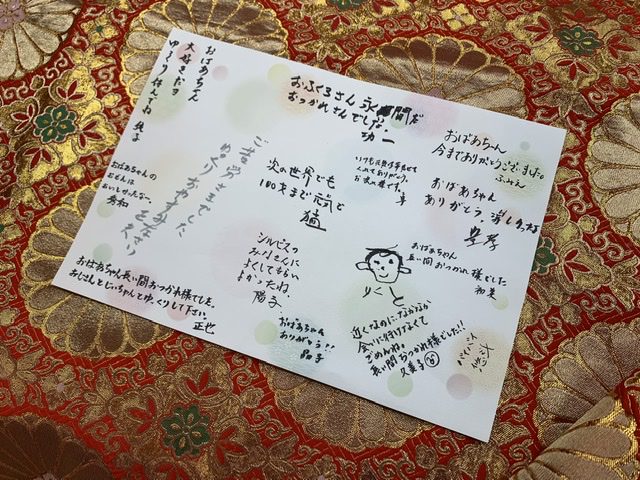 おばあちゃん
大好きだヨ
ゆっくり休んでね
おふくろさん 永い間
おつかれさんでした。
功一
おばあちゃん
今までありがとうございました
ふみえ
いつも元気な
くれてありがとう。
お疲れ様です。
おばあちゃん
ありがとう、楽しんで
おばあちゃんの
おいしかったなー。
秀和
ご苦労さまでした
ゆっくりおやすみ下さい
次の世界でも
100才まで元気で
猛
おばあちゃん
長い間おつかれ様でした
和美
シルビスの
みなさんに
よくしてもらい
よかったね。
陽子
りくと
おばあちゃん長い間おつかれ様でした。
おじさんとじいちゃんとゆっくりして下さい。
正也
おばあちゃん
ありがとう!!
晶子
近くなのになかなか
会いに行けなくて
ごめんね。
長い間おつかれ様でした!!
久美子